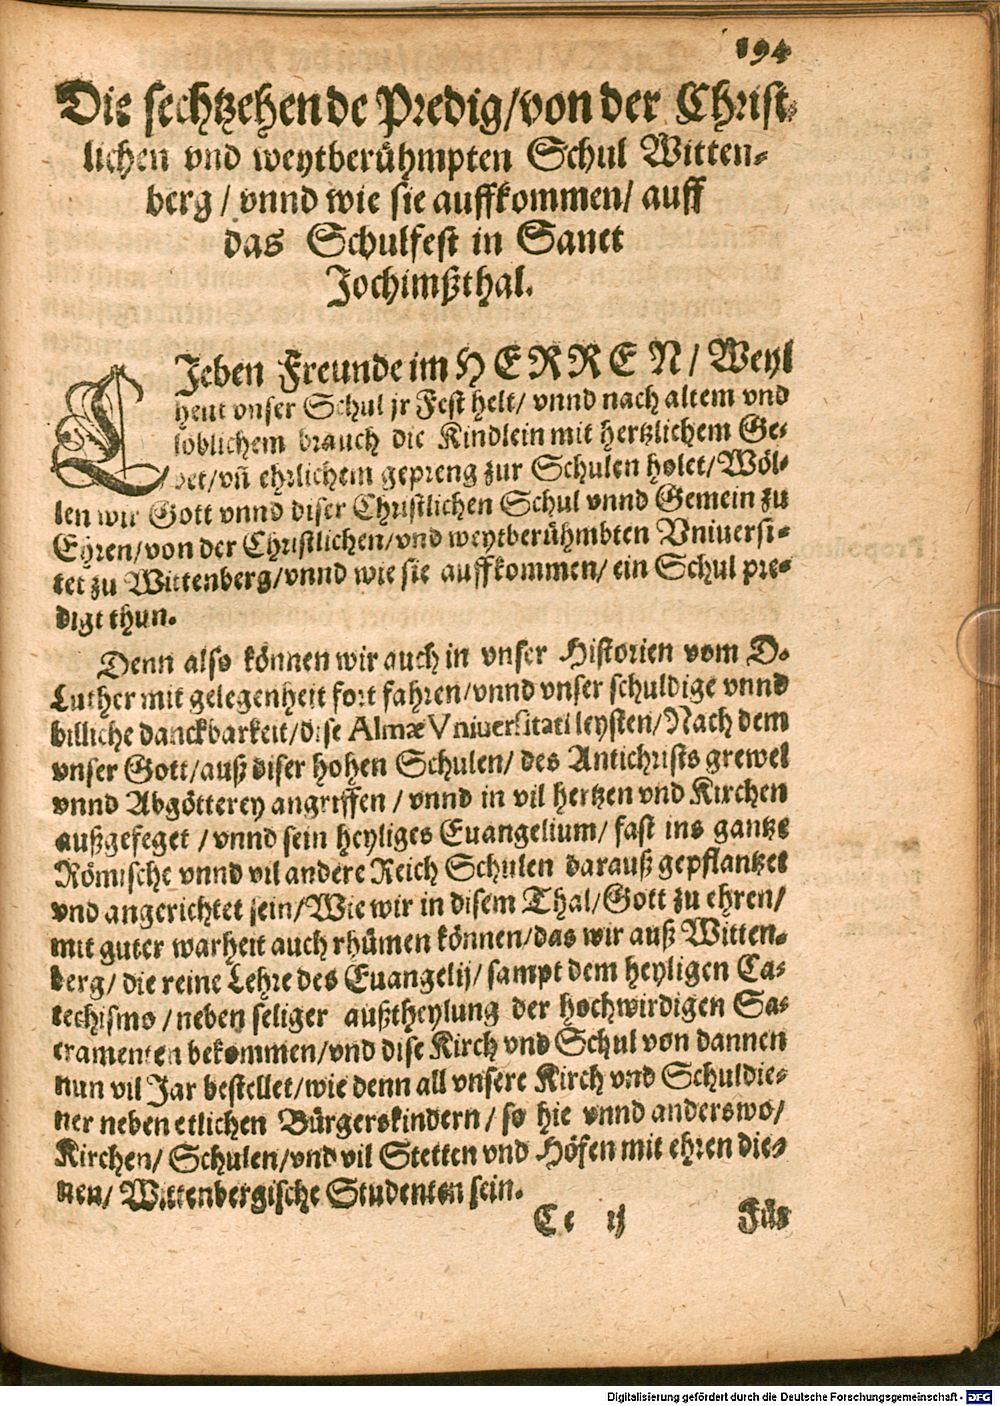 194
Die sechtzehende Predig/von der Christ-
lichen vnd weytberühmpten Schul Witten-
berg / vnnd wie sie auffkommen/ auff
das Schulfest in Sanct
Jochimßthal.
LJeben Freunde im HERREN/ Weyl
heut vnser Schul jr Fest helt/ vnnd nach altem vnd
löblichem brauch die Kindlein mit hertzlichem Ge-
bet/vñ ehrlichem gepreng zur Schulen holet/Wöl-
len wir Gott vnnd diser Christlichen Schul vnnd Gemein zu
Ehren/von der Christlichen/vnd weytberühmbten Vniuersi-
tet zu Wittenberg/vnnd wie sie auffkommen/ ein Schul pre-
digt thun.
Denn also können wir auch in vnser Historien vom D.
Luther mit gelegenheit fort fahren/vnnd vnser schuldige vnnd
billiche danckbarkeit/dise Almæ Vniuersitati leysten/Nach dem
vnser Gott/auß diser hohen Schulen/ des Antichrists grewel
vnnd Abgötterey angriffen / vnnd in vil hertzen vnd Kirchen
außgefeget / vnnd sein heyliges Euangelium/ fast ins gantze
Römische vnnd vil andere Reich Schulen darauß gepflantzet
vnd angerichtet sein/Wie wir in disem Thal/Gott zu ehren/
mit guter warheit auch rhümen können/das wir auß Witten-
berg/ die reine Lehre des Euangelij/ sampt dem heyligen Ca-
techismo / neben seliger außtheylung der hochwirdigen Sa-
cramenten bekommen/vnd dise Kirch vnd Schul von dannen
nun vil Jar bestellet/wie denn all vnsere Kirch vnd Schuldie-
ner neben etlichen Bürgerskindern/ so hie vnnd anderswo/
Kirchen/ Schulen/vnd vil Stetten vnd Höfen mit ehren die-
nen/ Wittenbergische Studenten sein.
Cc ij Für
Digitalisierung gefördert durch die Deutsche Forschungsgemeinschaft - DFG